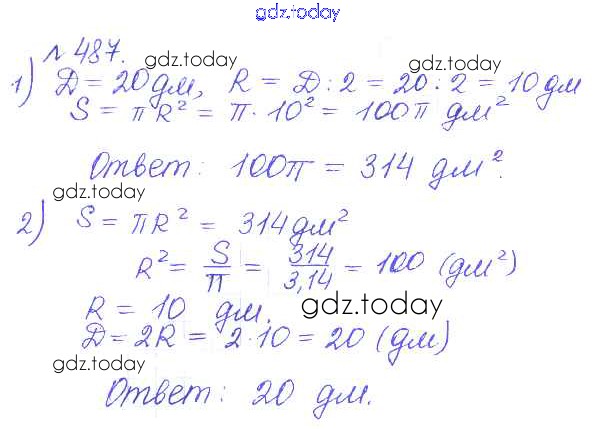 gdz.today
№ 487.
gdz.today gdz.today
1) D = 20 дм, R = D : 2 = 20 : 2 = 10 дм
S = πR² = π · 10² = 100π дм²
Ответ: 100π = 314 дм².
gdz.today
2) S = πR² = 314 дм²
R² = S/π = 314/3,14 = 100 (дм²)
R = 10 дм.
gdz.today
D = 2R = 2 · 10 = 20 (дм)
gdz.today
Ответ: 20 дм.